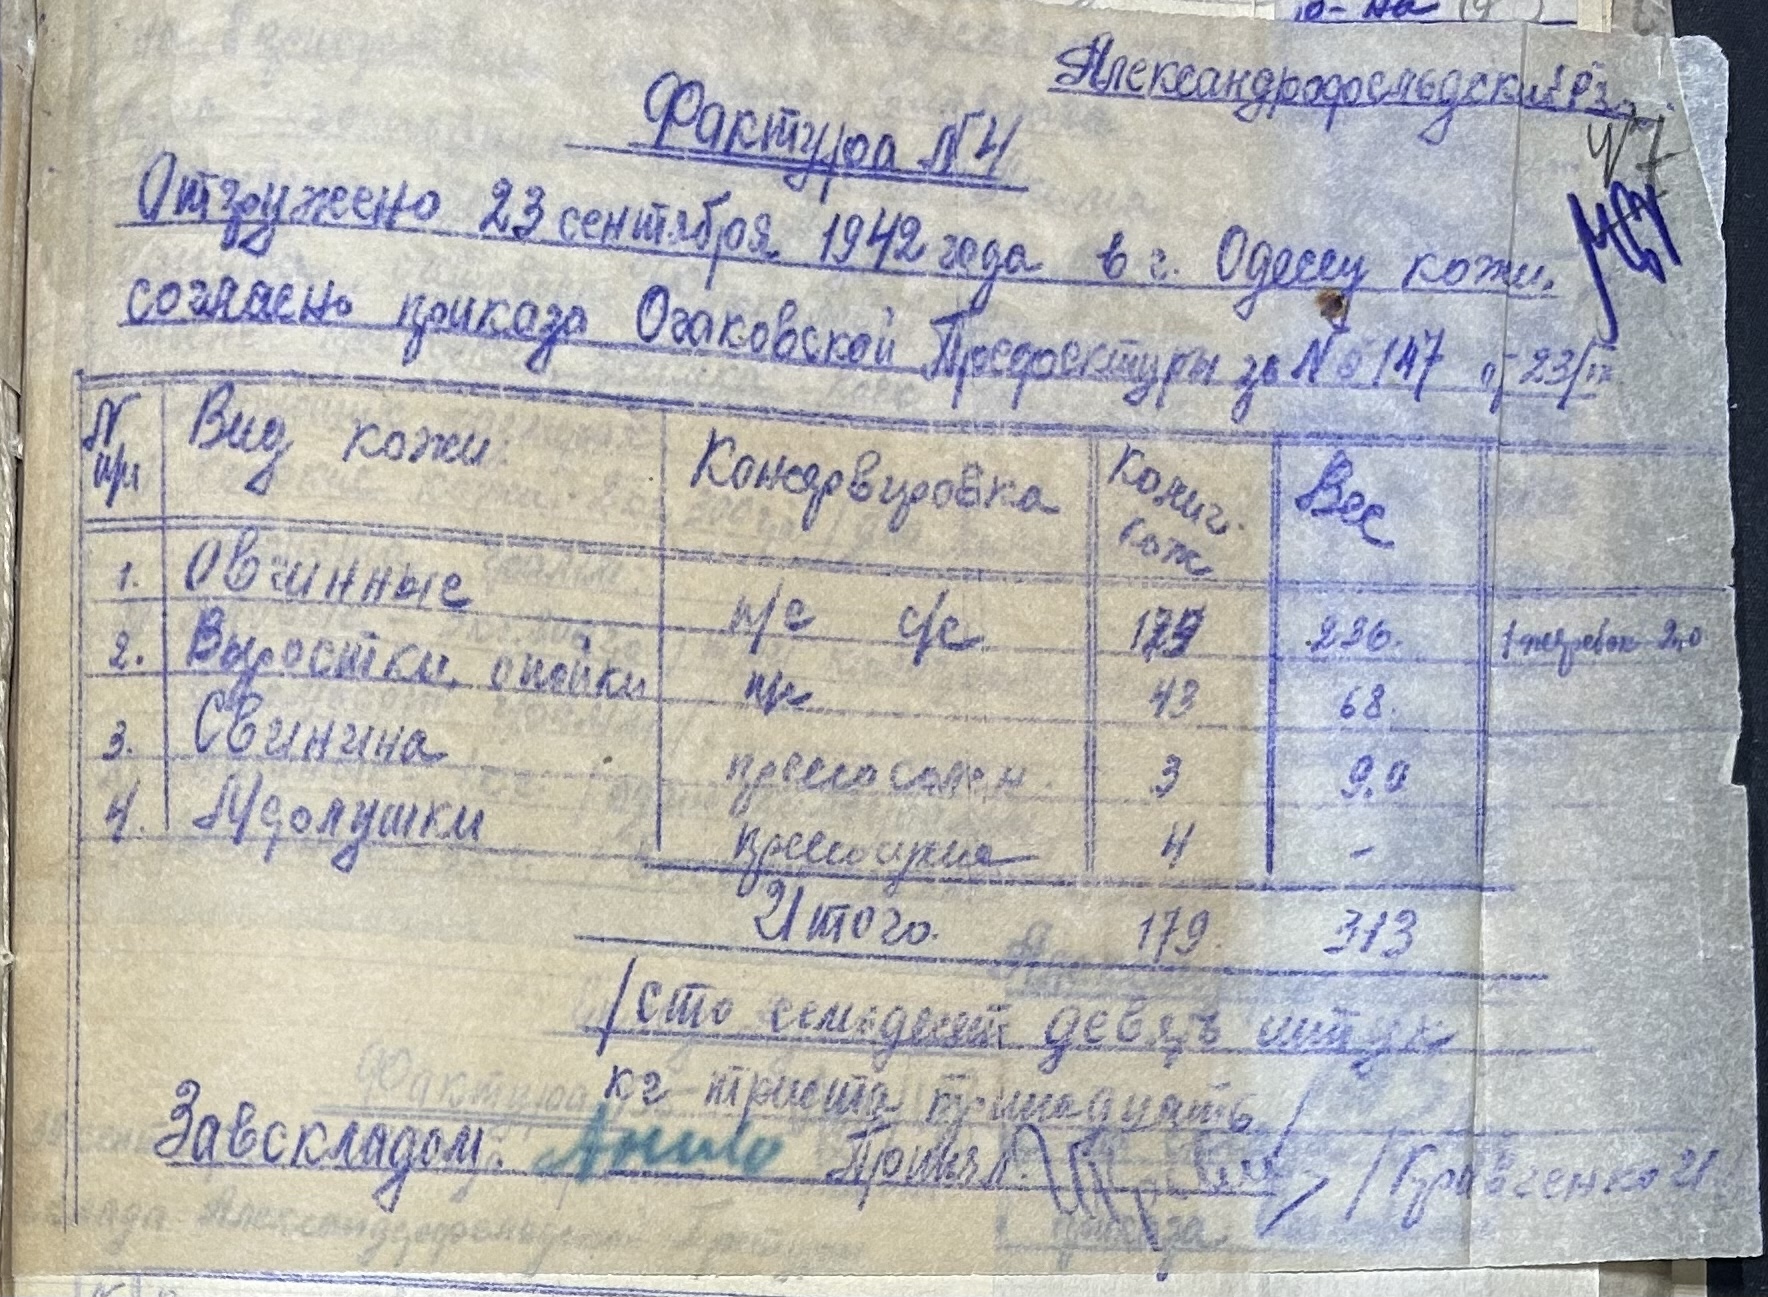 Александрфельдский р-з.
47
Фактура №4
Отгружено 23 сентября 1942 года в г. Одессу кожи.
согласно приказа Очаковской Префектуры за №147 от 23/IX
N п/п Вид кожи: Консервировка Колич. кож Вес
1. Овчинные п/с с/с 129 236.
2. Выростки, опойки п/с 43 68.
3. Свинина пресносолен. 3 9.0
4. Мерлушки преснос 4 -
Итого. 179. 313
/сто семьдесят девять штук
кг триста тринадцать/
Завскладом. Принял. /Кравченко И